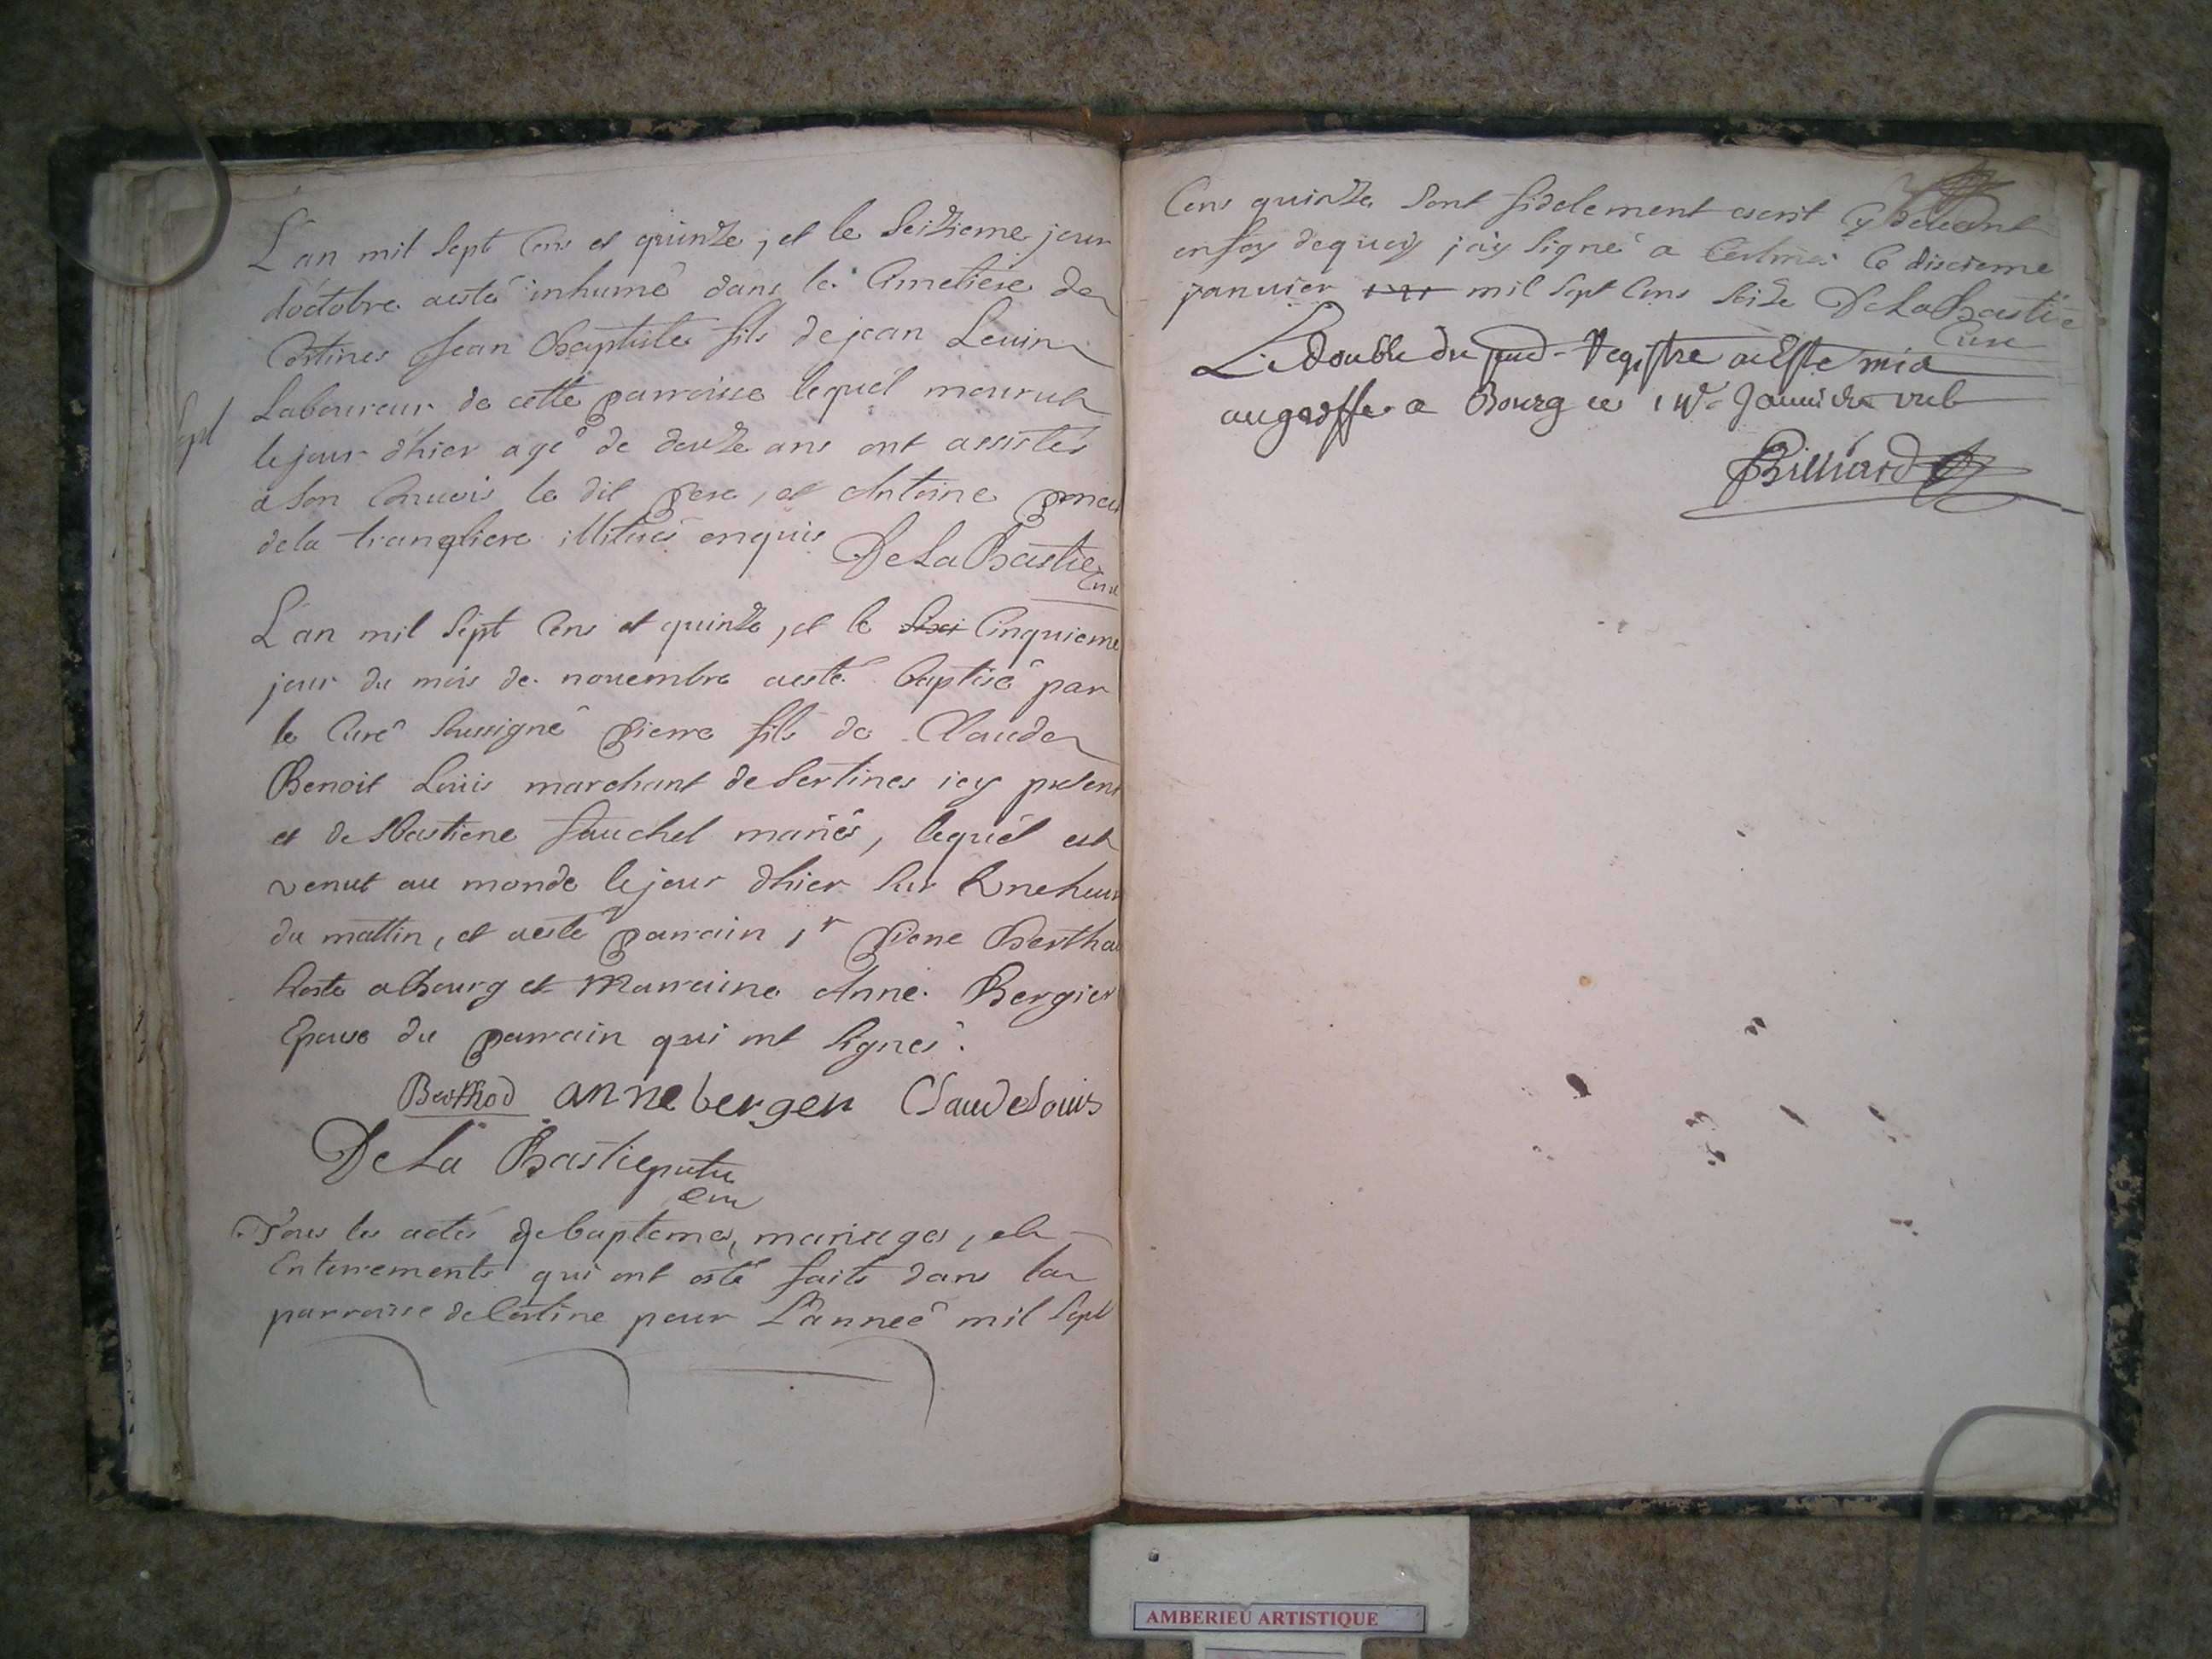 L'an mil sept cens et quinze, et le seizieme jour
doctobre aesté inhumé dans le cimetiere de
Certines Jean Baptiste fils de jean Leuin
Laboureur de cette parroisse lequel mourut
sept
le jour d'hier agé de douze ans ont assistés
a son convois le dit pere, et Antoine
de la trangliere illitirés enquis De La Bastie
Curé
L'an mil sept cens et quinze, et le cinquieme
jour du mois de novembre aesté baptisé par
le Curé soussigné pierre fils de Claude
Benoit Loüis marchant de Sertines icy present
et de Bastiene fauchet mariés, lequel est
venut au monde le jour dhier sur une heure
du mattin, et aesté parrain sr piere Berthod
hoste a bourg et Marraine Anne Bergier
Epouse du parrain qui ont signés.
Berthod anne berger Claude Louis
De La Bastie
Curé
Tous les actes de baptemes, mariages, et
Enterrements qui ont esté faits dans la
parroisse de Certine pour L'anneé mil sept
Cens quinze sont fidelement escrit cy devant
en foy dequoy j'ay signé a Certines le dixieme
janvier mil sept cens seize De La Bastie
Curé
Le double du pnt Registre a Esté mis
au greffe a Bourg ce Janvier
Billiard
AMBERIEU ARTISTIQUE